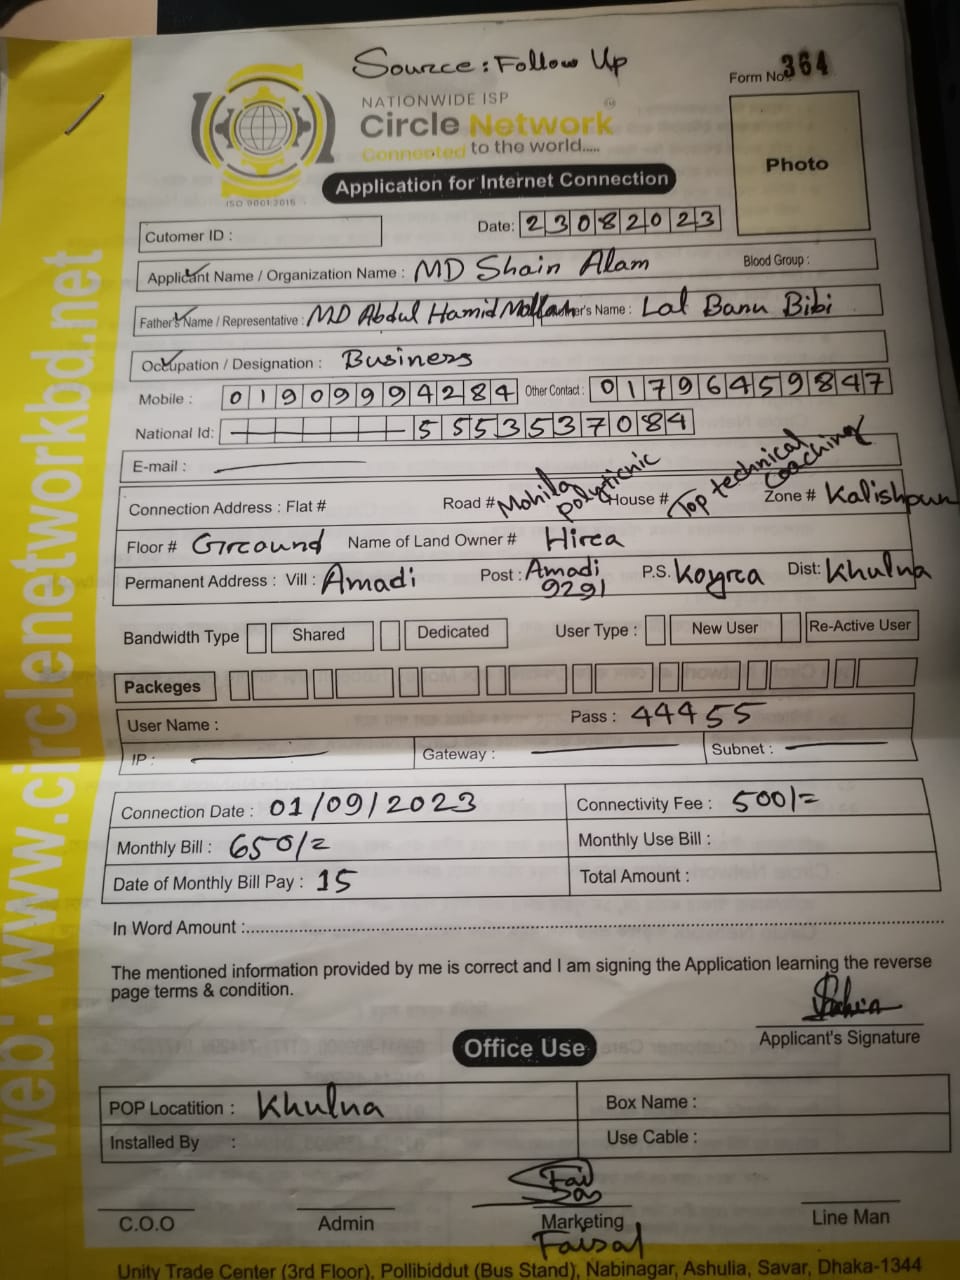 Source: Follow Up
Form No. 364
NATIONWIDE ISP
Circle Network
Connected to the world.....
ISO 9001:2015
Photo
Application for Internet Connection
Cutomer ID :
Date: 23082023
Applicant Name / Organization Name : MD Shain Alam Blood Group :
Father's Name / Representative : MD Abdul Hamid Mollah Mother's Name : Lal Banu Bibi
Occupation / Designation : Business
Mobile : 01909994284 Other Contact : 01796459847
National Id: 5553537084
E-mail :
Connection Address : Flat # Road # Mohila polyticnic House # Top technical coaching Zone # Kalishpur
Floor # Ground Name of Land Owner # Hira
Permanent Address : Vill : Amadi Post : Amadi 9291 P.S. Koyra Dist: Khulna
Bandwidth Type Shared Dedicated User Type : New User Re-Active User
Packeges
User Name : Pass : 44455
IP : Gateway : Subnet :
Connection Date : 01/09/2023 Connectivity Fee : 500/=
Monthly Bill : 650/= Monthly Use Bill :
Date of Monthly Bill Pay : 15 Total Amount :
In Word Amount :
The mentioned information provided by me is correct and I am signing the Application learning the reverse
page terms & condition.
Applicant's Signature
Office Use
POP Locatition : Khulna Box Name :
Installed By : Use Cable :
C.O.O Admin Marketing Line Man
Faisal
Unity Trade Center (3rd Floor), Pollibiddut (Bus Stand), Nabinagar, Ashulia, Savar, Dhaka-1344
web: www.circlenetworkbd.net